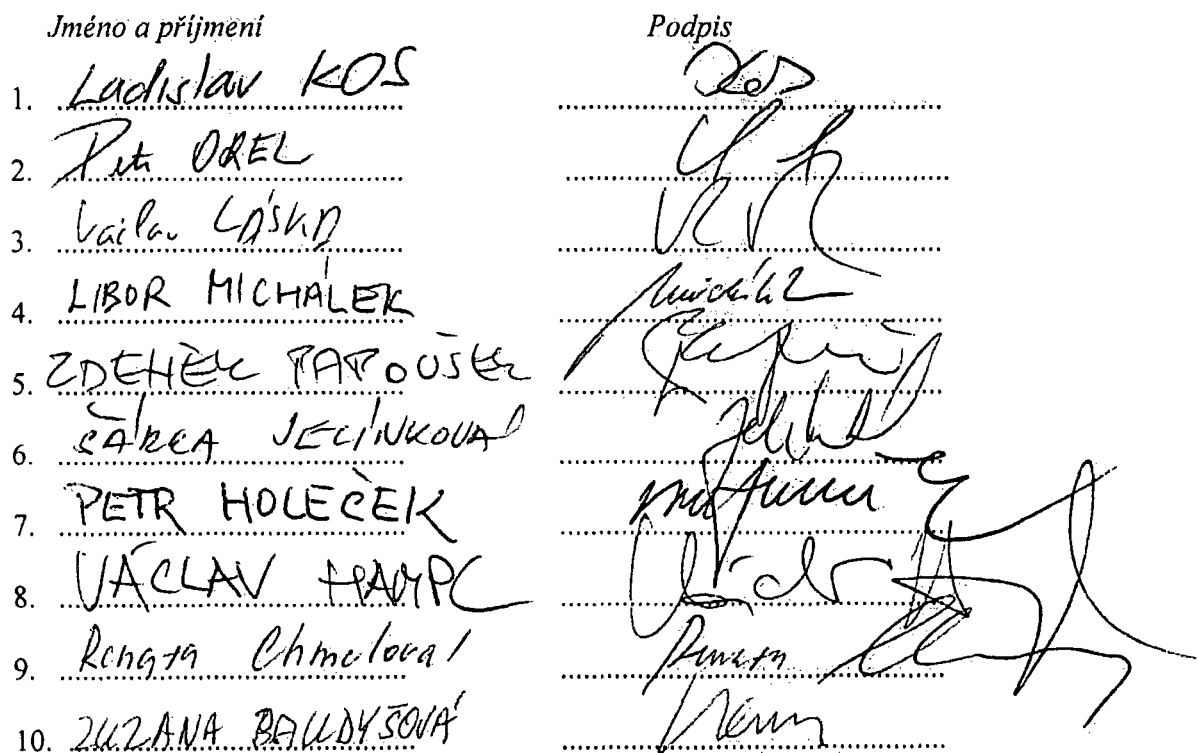 Jméno a příjmení Podpis
1. Ladislav KOS Kos
2. Petr OREL
3. Václav LÁSKA
4. LIBOR MICHÁLEK Michálek
5. ZDENĚK PAPOUŠEK
6. ŠÁRKA JELÍNKOVÁ
7. PETR HOLEČEK
8. VÁCLAV HAMPL
9. Renata Chmelová Renata
10. ZUZANA BAUDYŠOVÁ